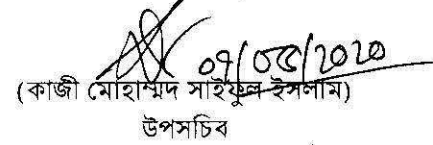 ০৭/০৫/২০২০
(কাজী মোহাম্মদ সাইফুল ইসলাম)
উপসচিব